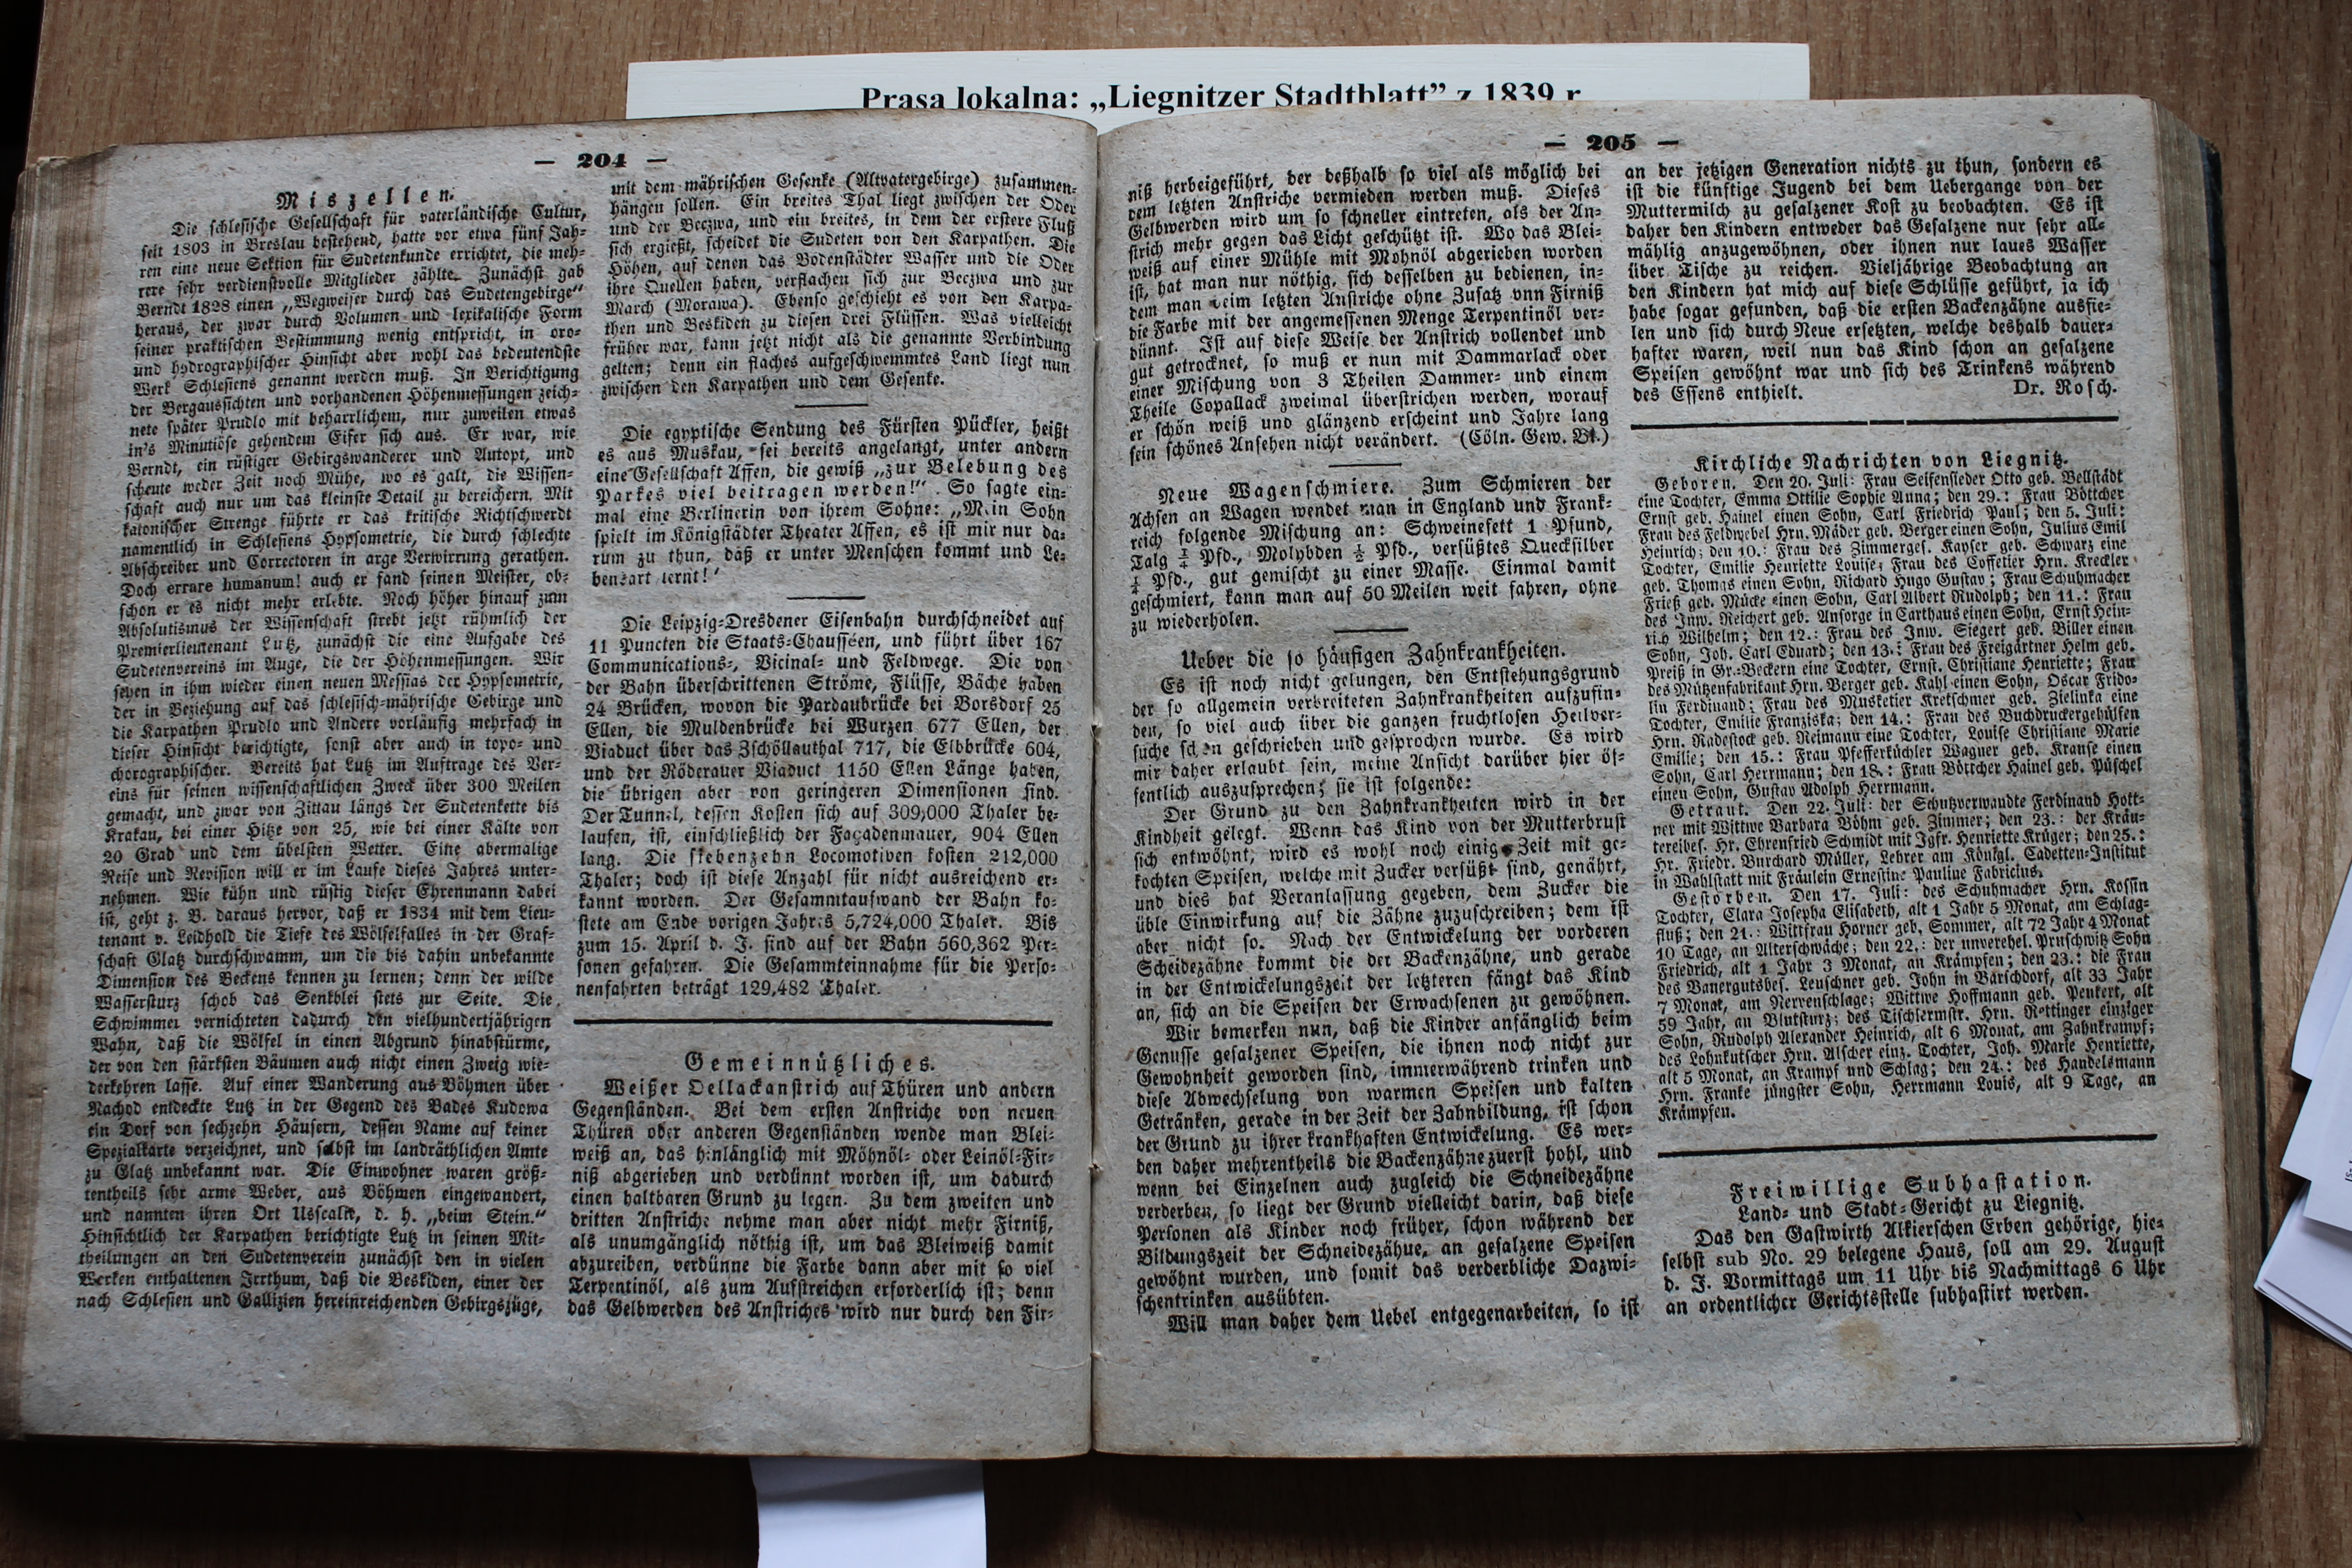 Prasa lokalna: „Liegnitzer Stadtblatt” z 1839 r
— 204 —
Miszellen.
Die schlesische Gesellschaft für vaterländische Cultur,
seit 1803 in Breslau bestehend, hatte vor etwa fünf Jah-
ren eine neue Sektion für Sudetenkunde errichtet, die meh-
rere sehr verdienstvolle Mitglieder zählte. Zunächst gab
Berndt 1828 einen „Wegweiser durch das Sudetengebirge“
heraus, der zwar durch Volumen und lexikalische Form
seiner praktischen Bestimmung wenig entspricht, in oro-
und hydrographischer Hinsicht aber wohl das bedeutendste
Werk Schlesiens genannt werden muß. In Berichtigung
der Bergaussichten und vorhandenen Höhenmessungen zeich-
nete später Prudlo mit beharrlichem, nur zuweilen etwas
in's Minutiöse gehendem Eifer sich aus. Er war, wie
Berndt, ein rüstiger Gebirgswanderer und Autopt, und
scheute weder Zeit noch Mühe, wo es galt, die Wissen-
schaft auch nur um das kleinste Detail zu bereichern. Mit
katonischer Strenge führte er das kritische Richtschwerdt
namentlich in Schlesiens Hypsometrie, die durch schlechte
Abschreiber und Correctoren in arge Verwirrung gerathen.
Doch errare humanum! auch er fand seinen Meister, ob-
schon er es nicht mehr erlebte. Noch höher hinauf zum
Absolutismus der Wissenschaft strebt jetzt rühmlich der
Premierlieutenant Lutz, zunächst die eine Aufgabe des
Sudetenvereins im Auge, die der Höhenmessungen. Wir
sehen in ihm wieder einen neuen Messias der Hypsometrie,
der in Beziehung auf das schlesisch-mährische Gebirge und
die Karpathen Prudlo und Andere vorläufig mehrfach in
dieser Hinsicht berichtigte, sonst aber auch in topo- und
chorographischer. Bereits hat Lutz im Auftrage des Ver-
eins für seinen wissenschaftlichen Zweck über 300 Meilen
gemacht, und zwar von Zittau längs der Sudetenkette bis
Krakau, bei einer Hitze von 25, wie bei einer Kälte von
20 Grad und dem übelsten Wetter. Eine abermalige
Reise und Revision will er im Laufe dieses Jahres unter-
nehmen. Wie kühn und rüstig dieser Ehrenmann dabei
ist, geht z. B. daraus hervor, daß er 1834 mit dem Lieu-
tenant v. Leidhold die Tiefe des Wölfelfalles in der Graf-
schaft Glatz durchschwamm, um die bis dahin unbekannte
Dimension des Beckens kennen zu lernen; denn der wilde
Wassersturz schob das Senkblei stets zur Seite. Die
Schwimmer vernichteten dadurch den vielhundertjährigen
Wahn, daß die Wölfel in einen Abgrund hinabstürme,
der von den stärksten Bäumen auch nicht einen Zweig wie-
derkehren lasse. Auf einer Wanderung aus Böhmen über
Nachod entdeckte Lutz in der Gegend des Bades Kudowa
ein Dorf von sechzehn Häusern, dessen Name auf keiner
Spezialkarte verzeichnet, und selbst im landräthlichen Amte
zu Glatz unbekannt war. Die Einwohner waren größ-
tentheils sehr arme Weber, aus Böhmen eingewandert,
und nannten ihren Ort Usscalir, d. h. „beim Stein.“
Hinsichtlich der Karpathen berichtigte Lutz in seinen Mit-
theilungen an den Sudetenverein zunächst den in vielen
Werken enthaltenen Irrthum, daß die Beskiden, einer der
nach Schlesien und Gallizien hereinreichenden Gebirgszüge,
mit dem mährischen Gesenke (Altvatergebirge) zusammen-
hängen sollen. Ein breites Thal liegt zwischen der Oder
und der Beczwa, und ein breites, in dem der erstere Fluß
sich ergießt, scheidet die Sudeten von den Karpathen. Die
Höhen, auf denen das Bodenstädter Wasser und die Oder
ihre Quellen haben, verflachen sich zur Beczwa und zur
March (Morawa). Ebenso geschieht es von den Karpa-
then und Beskiden zu diesen drei Flüssen. Was vielleicht
früher war, kann jetzt nicht als die genannte Verbindung
gelten; denn ein flaches aufgeschwemmtes Land liegt nun
zwischen den Karpathen und dem Gesenke.
Die egyptische Sendung des Fürsten Pückler, heißt
es aus Muskau, sei bereits angelangt, unter andern
eine Gesellschaft Affen, die gewiß „zur Belebung des
Parkes viel beitragen werden!“ So sagte ein-
mal eine Berlinerin von ihrem Sohne: „Mein Sohn
spielt im Königstädter Theater Affen, es ist mir nur da-
rum zu thun, daß er unter Menschen kommt und Le-
bensart lernt!“
Die Leipzig-Dresdener Eisenbahn durchschneidet auf
11 Puncten die Staats-Chausséen, und führt über 167
Communications-, Vicinal- und Feldwege. Die von
der Bahn überschrittenen Ströme, Flüsse, Bäche haben
24 Brücken, wovon die Pardaubrücke bei Borsdorf 25
Ellen, die Muldenbrücke bei Wurzen 677 Ellen, der
Viaduct über das Zschöllauthal 717, die Elbbrücke 604,
und der Röderauer Viaduct 1150 Ellen Länge haben,
die übrigen aber von geringeren Dimensionen sind.
Der Tunnel, dessen Kosten sich auf 309,000 Thaler be-
laufen, ist, einschließlich der Façadenmauer, 904 Ellen
lang. Die siebenzehn Locomotiven kosten 212,000
Thaler; doch ist diese Anzahl für nicht ausreichend er-
kannt worden. Der Gesammtaufwand der Bahn ko-
stete am Ende vorigen Jahres 5,724,000 Thaler. Bis
zum 15. April d. J. sind auf der Bahn 560,362 Per-
sonen gefahren. Die Gesammteinnahme für die Perso-
nenfahrten beträgt 129,482 Thaler.
Gemeinnützliches.
Weißer Oellackanstrich auf Thüren und andern
Gegenständen. Bei dem ersten Anstriche von neuen
Thüren oder anderen Gegenständen wende man Blei-
weiß an, das hinlänglich mit Möhnöl- oder Leinöl-Fir-
niß abgerieben und verdünnt worden ist, um dadurch
einen haltbaren Grund zu legen. Zu dem zweiten und
dritten Anstriche nehme man aber nicht mehr Firniß,
als unumgänglich nöthig ist, um das Bleiweiß damit
abzureiben, verdünne die Farbe dann aber mit so viel
Terpentinöl, als zum Aufstreichen erforderlich ist; denn
das Gelbwerden des Anstriches wird nur durch den Fir-
— 205 —
niß herbeigeführt, der deßhalb so viel als möglich bei
dem letzten Anstriche vermieden werden muß. Dieses
Gelbwerden wird um so schneller eintreten, als der An-
strich mehr gegen das Licht geschützt ist. Wo das Blei-
weiß auf einer Mühle mit Mohnöl abgerieben worden
ist, hat man nur nöthig, sich desselben zu bedienen, in-
dem man beim letzten Anstriche ohne Zusatz vnn Firniß
die Farbe mit der angemessenen Menge Terpentinöl ver-
dünnt. Ist auf diese Weise der Anstrich vollendet und
gut getrocknet, so muß er nun mit Dammarlack oder
einer Mischung von 3 Theilen Dammer- und einem
Theile Copallack zweimal überstrichen werden, worauf
er schön weiß und glänzend erscheint und Jahre lang
sein schönes Ansehen nicht verändert. (Cöln. Gew. Bl.)
Neue Wagenschmiere. Zum Schmieren der
Achsen an Wagen wendet man in England und Frank-
reich folgende Mischung an: Schweinefett 1 Pfund,
Talg Pfd., Molybden Pfd., versüßtes Quecksilber
Pfd., gut gemischt zu einer Masse. Einmal damit
geschmiert, kann man auf 50 Meilen weit fahren, ohne
zu wiederholen.
Ueber die so häufigen Zahnkrankheiten.
Es ist noch nicht gelungen, den Entstehungsgrund
der so allgemein verbreiteten Zahnkrankheiten aufzufin-
den, so viel auch über die ganzen fruchtlosen Heilver-
suche schon geschrieben und gesprochen wurde. Es wird
mir daher erlaubt sein, meine Ansicht darüber hier öf-
fentlich auszusprechen; sie ist folgende:
Der Grund zu den Zahnkrankheiten wird in der
Kindheit gelegt. Wenn das Kind von der Mutterbrust
sich entwöhnt, wird es wohl noch einige Zeit mit ge-
kochten Speisen, welche mit Zucker versüßt sind, genährt,
und dies hat Veranlassung gegeben, dem Zucker die
üble Einwirkung auf die Zähne zuzuschreiben; dem ist
aber nicht so. Nach der Entwickelung der vorderen
Scheidezähne kommt die der Backenzähne, und gerade
in der Entwickelungszeit der letzteren fängt das Kind
an, sich an die Speisen der Erwachsenen zu gewöhnen.
Wir bemerken nun, daß die Kinder anfänglich beim
Genusse gesalzener Speisen, die ihnen noch nicht zur
Gewohnheit geworden sind, immerwährend trinken und
diese Abwechselung von warmen Speisen und kalten
Getränken, gerade in der Zeit der Zahnbildung, ist schon
der Grund zu ihrer krankhaften Entwickelung. Es wer-
den daher mehrentheils die Backenzähne zuerst hohl, und
wenn bei Einzelnen auch zugleich die Schneidezähne
verderben, so liegt der Grund vielleicht darin, daß diese
Personen als Kinder noch früher, schon während der
Bildungszeit der Schneidezähue, an gesalzene Speisen
gewöhnt wurden, und somit das verderbliche Dazwi-
schentrinken ausübten.
Will man daher dem Uebel entgegenarbeiten, so ist
an der jetzigen Generation nichts zu thun, sondern es
ist die künftige Jugend bei dem Uebergange von der
Muttermilch zu gesalzener Kost zu beobachten. Es ist
daher den Kindern entweder das Gesalzene nur sehr all-
mählig anzugewöhnen, oder ihnen nur laues Wasser
über Tische zu reichen. Vieljährige Beobachtung an
den Kindern hat mich auf diese Schlüsse geführt, ja ich
habe sogar gefunden, daß die ersten Backenzähne ausfie-
len und sich durch Neue ersetzten, welche deshalb dauer-
hafter waren, weil nun das Kind schon an gesalzene
Speisen gewöhnt war und sich des Trinkens während
des Essens enthielt. Dr. Rosch.
Kirchliche Nachrichten von Liegnitz.
Geboren. Den 20. Juli: Frau Seifensieder Otto geb. Bellstädt
eine Tochter, Emma Ottilie Sophie Anna; den 29.: Frau Böttcher
Ernst geb. Hainel einen Sohn, Carl Friedrich Paul; den 5. Juli:
Frau des Feldwebel Hrn. Mäder geb. Berger einen Sohn, Julius Emil
Heinrich; den 10.: Frau des Zimmerges. Kayser geb. Schwarz eine
Tochter, Emilie Henriette Louise; Frau des Coffetier Hrn. Kreckler
geb. Thomas einen Sohn, Richard Hugo Gustav; Frau Schuhmacher
Frieß geb. Mücke einen Sohn, Carl Albert Rudolph; den 11.: Frau
des Inw. Reichert geb. Ansorge in Carthaus einen Sohn, Ernst Hein-
rich Wilhelm; den 12.: Frau des Inw. Siegert geb. Biller einen
Sohn, Joh. Carl Eduard; den 13.: Frau des Freigärtner Helm geb.
Preiß in Gr.-Beckern eine Tochter, Ernst. Christiane Henriette; Frau
des Mützenfabrikant Hrn. Berger geb. Kahl einen Sohn, Oscar Frido-
lin Ferdinand; Frau des Musketier Kretschmer geb. Zielinka eine
Tochter, Emilie Franziska; den 14.: Frau des Buchdruckergehülfen
Hrn. Radestock geb. Reimann eine Tochter, Louise Christiane Marie
Emilie; den 15.: Frau Pfefferküchler Wagner geb. Krause einen
Sohn, Carl Herrmann; den 18.: Frau Böttcher Hainel geb. Püschel
einen Sohn, Gustav Adolph Herrmann.
Getraut. Den 22. Juli: der Schutzverwandte Ferdinand Hott-
ner mit Wittwe Barbara Böhm geb. Zimmer; den 23.: der Kräu-
tereibes. Hr. Ehrenfried Schmidt mit Jgfr. Henriette Krüger; den 25.:
Hr. Friedr. Burchard Müller, Lehrer am Königl. Cadetten-Institut
in Wahlstatt mit Fräulein Ernestine Pauline Fabricius.
Gestorben. Den 17. Juli: des Schuhmacher Hrn. Kossin
Tochter, Clara Josepha Elisabeth, alt 1 Jahr 5 Monat, am Schlag-
fluß; den 21.: Wittfrau Horner geb. Sommer, alt 72 Jahr 4 Monat
10 Tage, an Alterschwäche; den 22.: der unverehel. Pruschwitz Sohn
Friedrich, alt 1 Jahr 3 Monat, an Krämpfen; den 23.: die Frau
des Bauergutsbes. Leuschner geb. John in Barschdorf, alt 33 Jahr
7 Monat, am Nervenschlage; Wittwe Hoffmann geb. Peukert, alt
59 Jahr, an Blutsturz; des Tischlermstr. Hrn. Rettinger einziger
Sohn, Rudolph Alexander Heinrich, alt 6 Monat, am Zahnkrampf;
des Lohnkutscher Hrn. Alscher einz. Tochter, Joh. Marie Henriette,
alt 5 Monat, an Krampf und Schlag; den 24.: des Handelsmann
Hrn. Franke jüngster Sohn, Herrmann Louis, alt 9 Tage, an
Krämpfen.
Freiwillige Subhastation.
Land- und Stadt-Gericht zu Liegnitz.
Das den Gastwirth Alkierschen Erben gehörige, hie-
selbst sub No. 29 belegene Haus, soll am 29. August
d. J. Vormittags um 11 Uhr bis Nachmittags 6 Uhr
an ordentlicher Gerichtsstelle subhastirt werden.